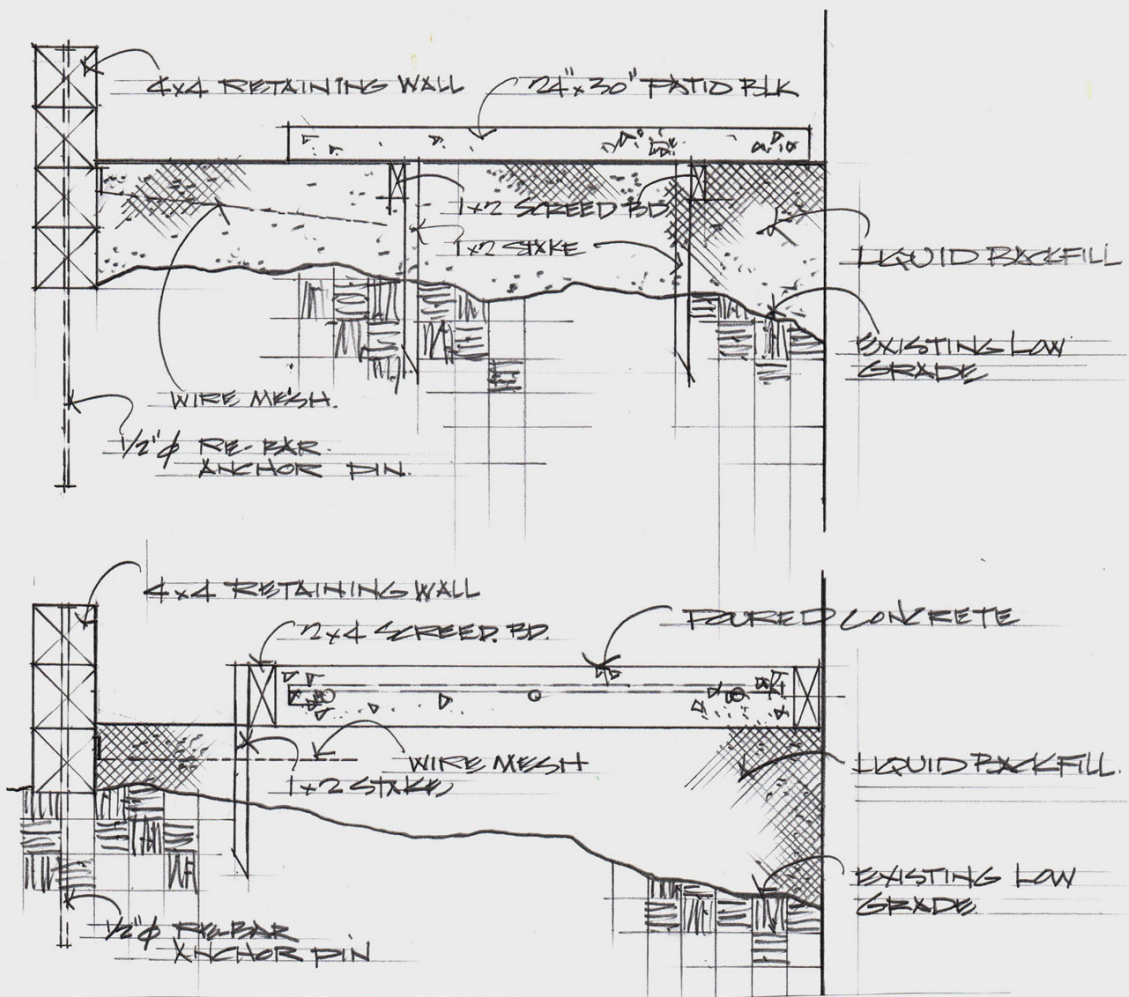 4x4 RETAINING WALL
24"x30" PATIO BLK
1x2 SCREED BD.
1x2 STAKE
LIQUID BACKFILL
EXISTING LOW
GRADE
WIRE MESH.
1/2"φ RE-BAR
ANCHOR PIN.
4x4 RETAINING WALL
2x4 SCREED. BD.
POURED CONCRETE
WIRE MESH
1x2 STAKE
LIQUID BACKFILL.
EXISTING LOW
GRADE
1/2"φ RE-BAR
ANCHOR PIN